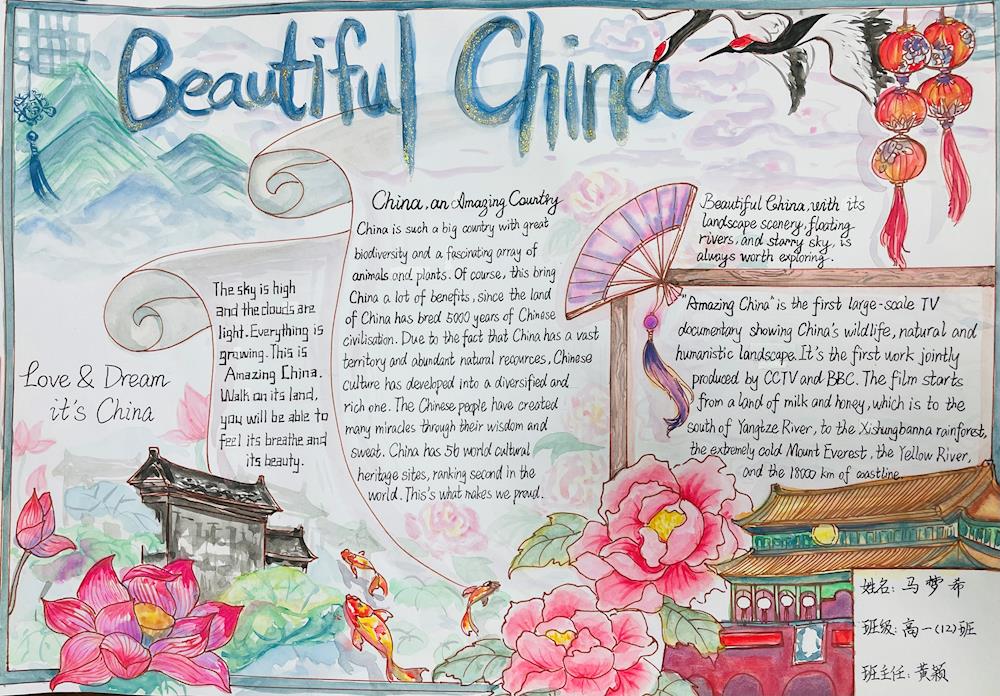 Beautiful China
China, an Amazing Country
China is such a big country with great
biodiversity and a fascinating array of
animals and plants. Of course, this bring
China a lot of benefits, since the land
of China has bred 5000 years of Chinese
civilisation. Due to the fact that China has a vast
territory and abundant natural recources, Chinese
culture has developed into a diversified and
rich one. The Chinese people have created
many miracles through their wisdom and
sweat. China has 56 world cultural
heritage sites, ranking second in the
world. This's what makes we proud.
Beautiful China, with its
landscape scenery, floating
rivers, and starry sky, is
always worth exploring.
The sky is high
and the clouds are
light. Everything is
growing. This is
Amazing China.
Walk on its land,
you will be able to
feel its breathe and
its beauty.
Love & Dream
it's China
"Amazing China" is the first large-scale TV
documentary showing China's wildlife, natural and
humanistic landscape. It's the first work jointly
produced by CCTV and BBC. The film starts
from a land of milk and honey, which is to the
south of Yangtze River, to the Xishuangbanna rainforest,
the extremely cold Mount Everest, the Yellow River,
and the 18000 km of coastline.
姓名: 马梦希
班级: 高一(12)班
班主任: 黄颖